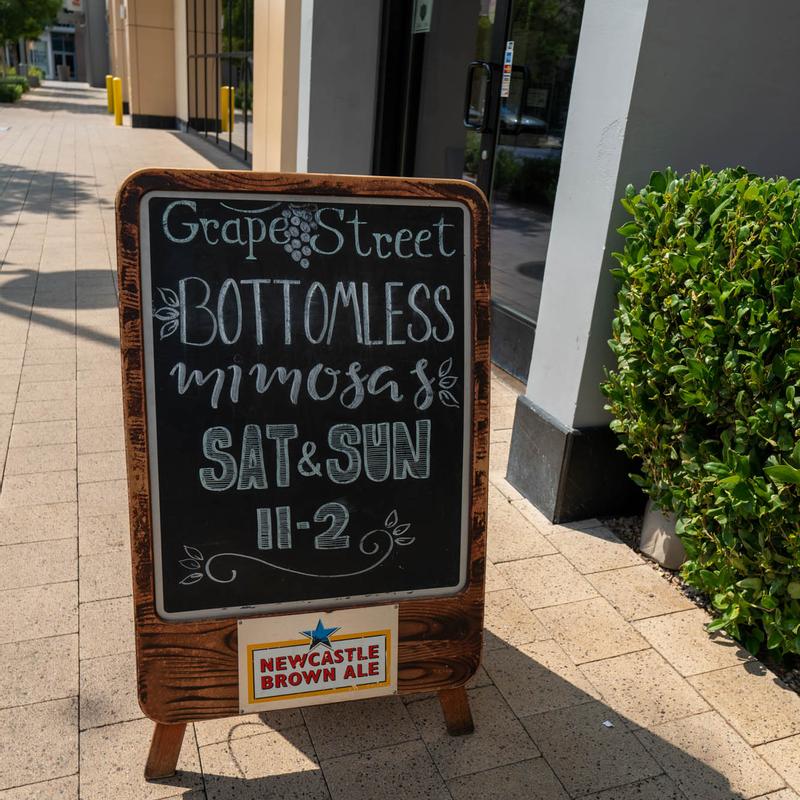 Grape Street
BOTTOMLESS
mimosas
SAT & SUN
11-2
NEWCASTLE
BROWN ALE